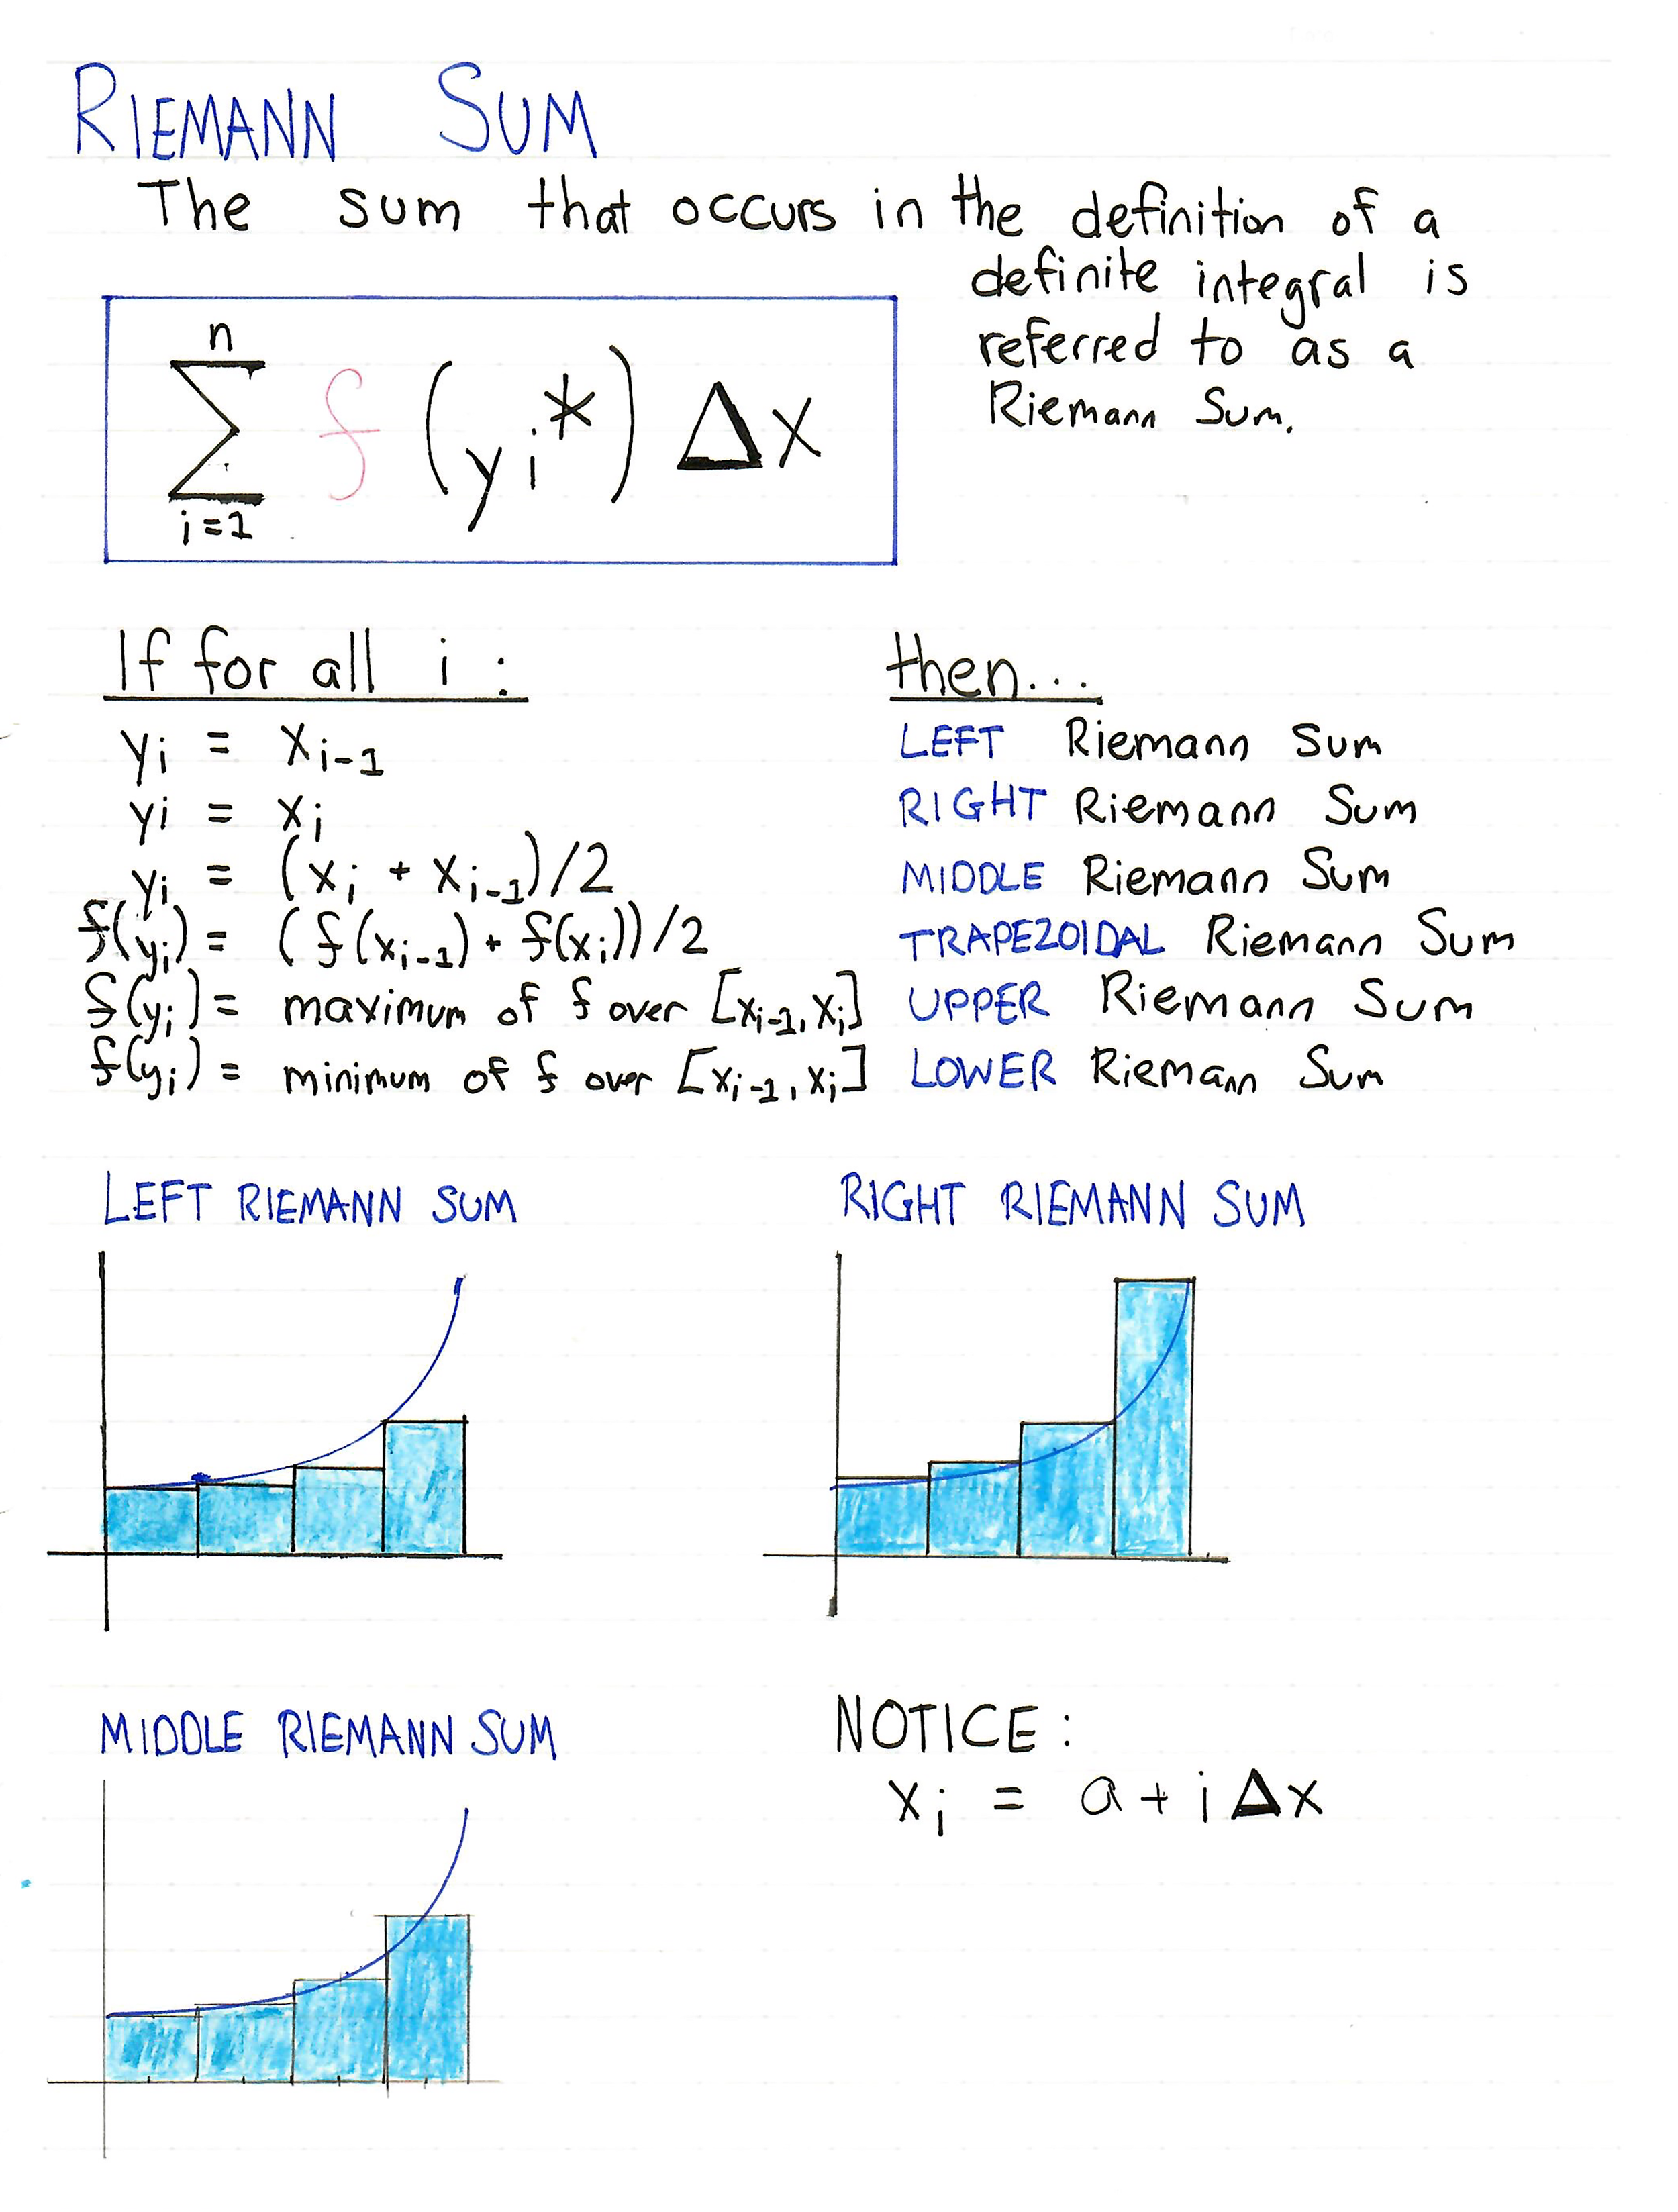 RIEMANN SUM
The sum that occurs in the definition of a
definite integral is
referred to as a
Riemann Sum.
n
∑ f (yᵢ*) Δx
i=1
If for all i: then...
yᵢ = xᵢ₋₁ LEFT Riemann Sum
yᵢ = xᵢ RIGHT Riemann Sum
yᵢ = (xᵢ + xᵢ₋₁)/2 MIDDLE Riemann Sum
f(yᵢ) = (f(xᵢ₋₁) + f(xᵢ))/2 TRAPEZOIDAL Riemann Sum
f(yᵢ) = maximum of f over [xᵢ₋₁, xᵢ] UPPER Riemann Sum
f(yᵢ) = minimum of f over [xᵢ₋₁, xᵢ] LOWER Riemann Sum
LEFT RIEMANN SUM RIGHT RIEMANN SUM
MIDDLE RIEMANN SUM NOTICE:
xᵢ = a + i Δx